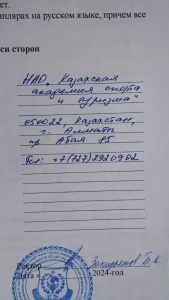 ет.
плярах на русском языке, причем все
си сторон
НАО "Казахская
академия спорта
и туризма"
050022, Казахстан,
г. Алматы
пр. Абая 85
Тел: +7(727)2920902
Ректор
Дата «
2024-год